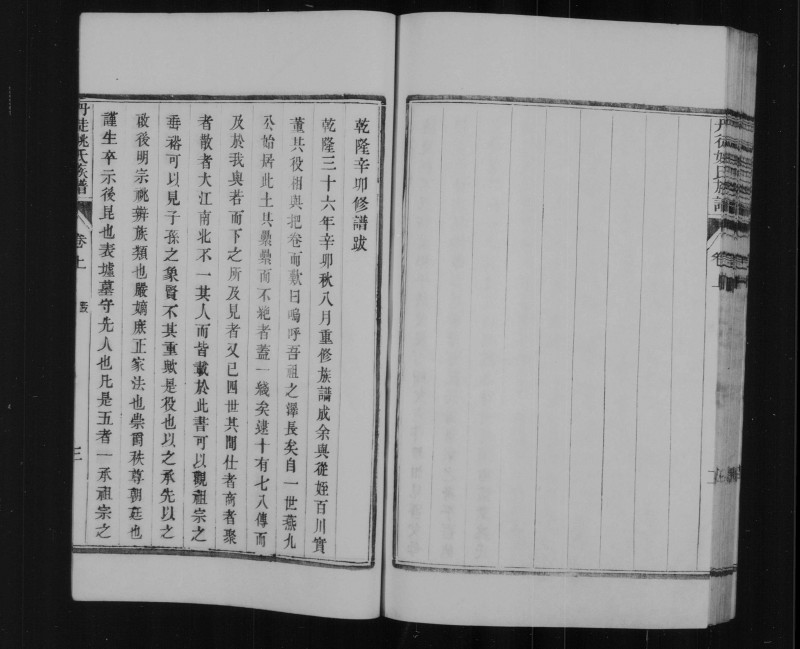 丹徒姚氏族譜
卷上
乾隆辛卯修譜跋
乾隆三十六年辛卯秋八月重修族譜成余與從姪百川實
董其役相與把卷而歎曰嗚呼吾祖之澤長矣自一世燕九
公始居此土其纍纍而不絶者蓋一綫矣逮十有七八傳而
及於我與若而下之所及見者又已四世其間仕者商者聚
者散者大江南北不一其人而皆載於此書可以觀祖宗之
垂裕可以見子孫之象賢不其重歟是役也以之承先以之
啟後明宗祧辨族類也嚴嫡庶正家法也崇爵秩尊朝廷也
謹生卒示後昆也表墟墓守先人也凡是五者一承祖宗之
丹徒姚氏族譜
卷上
跋
三